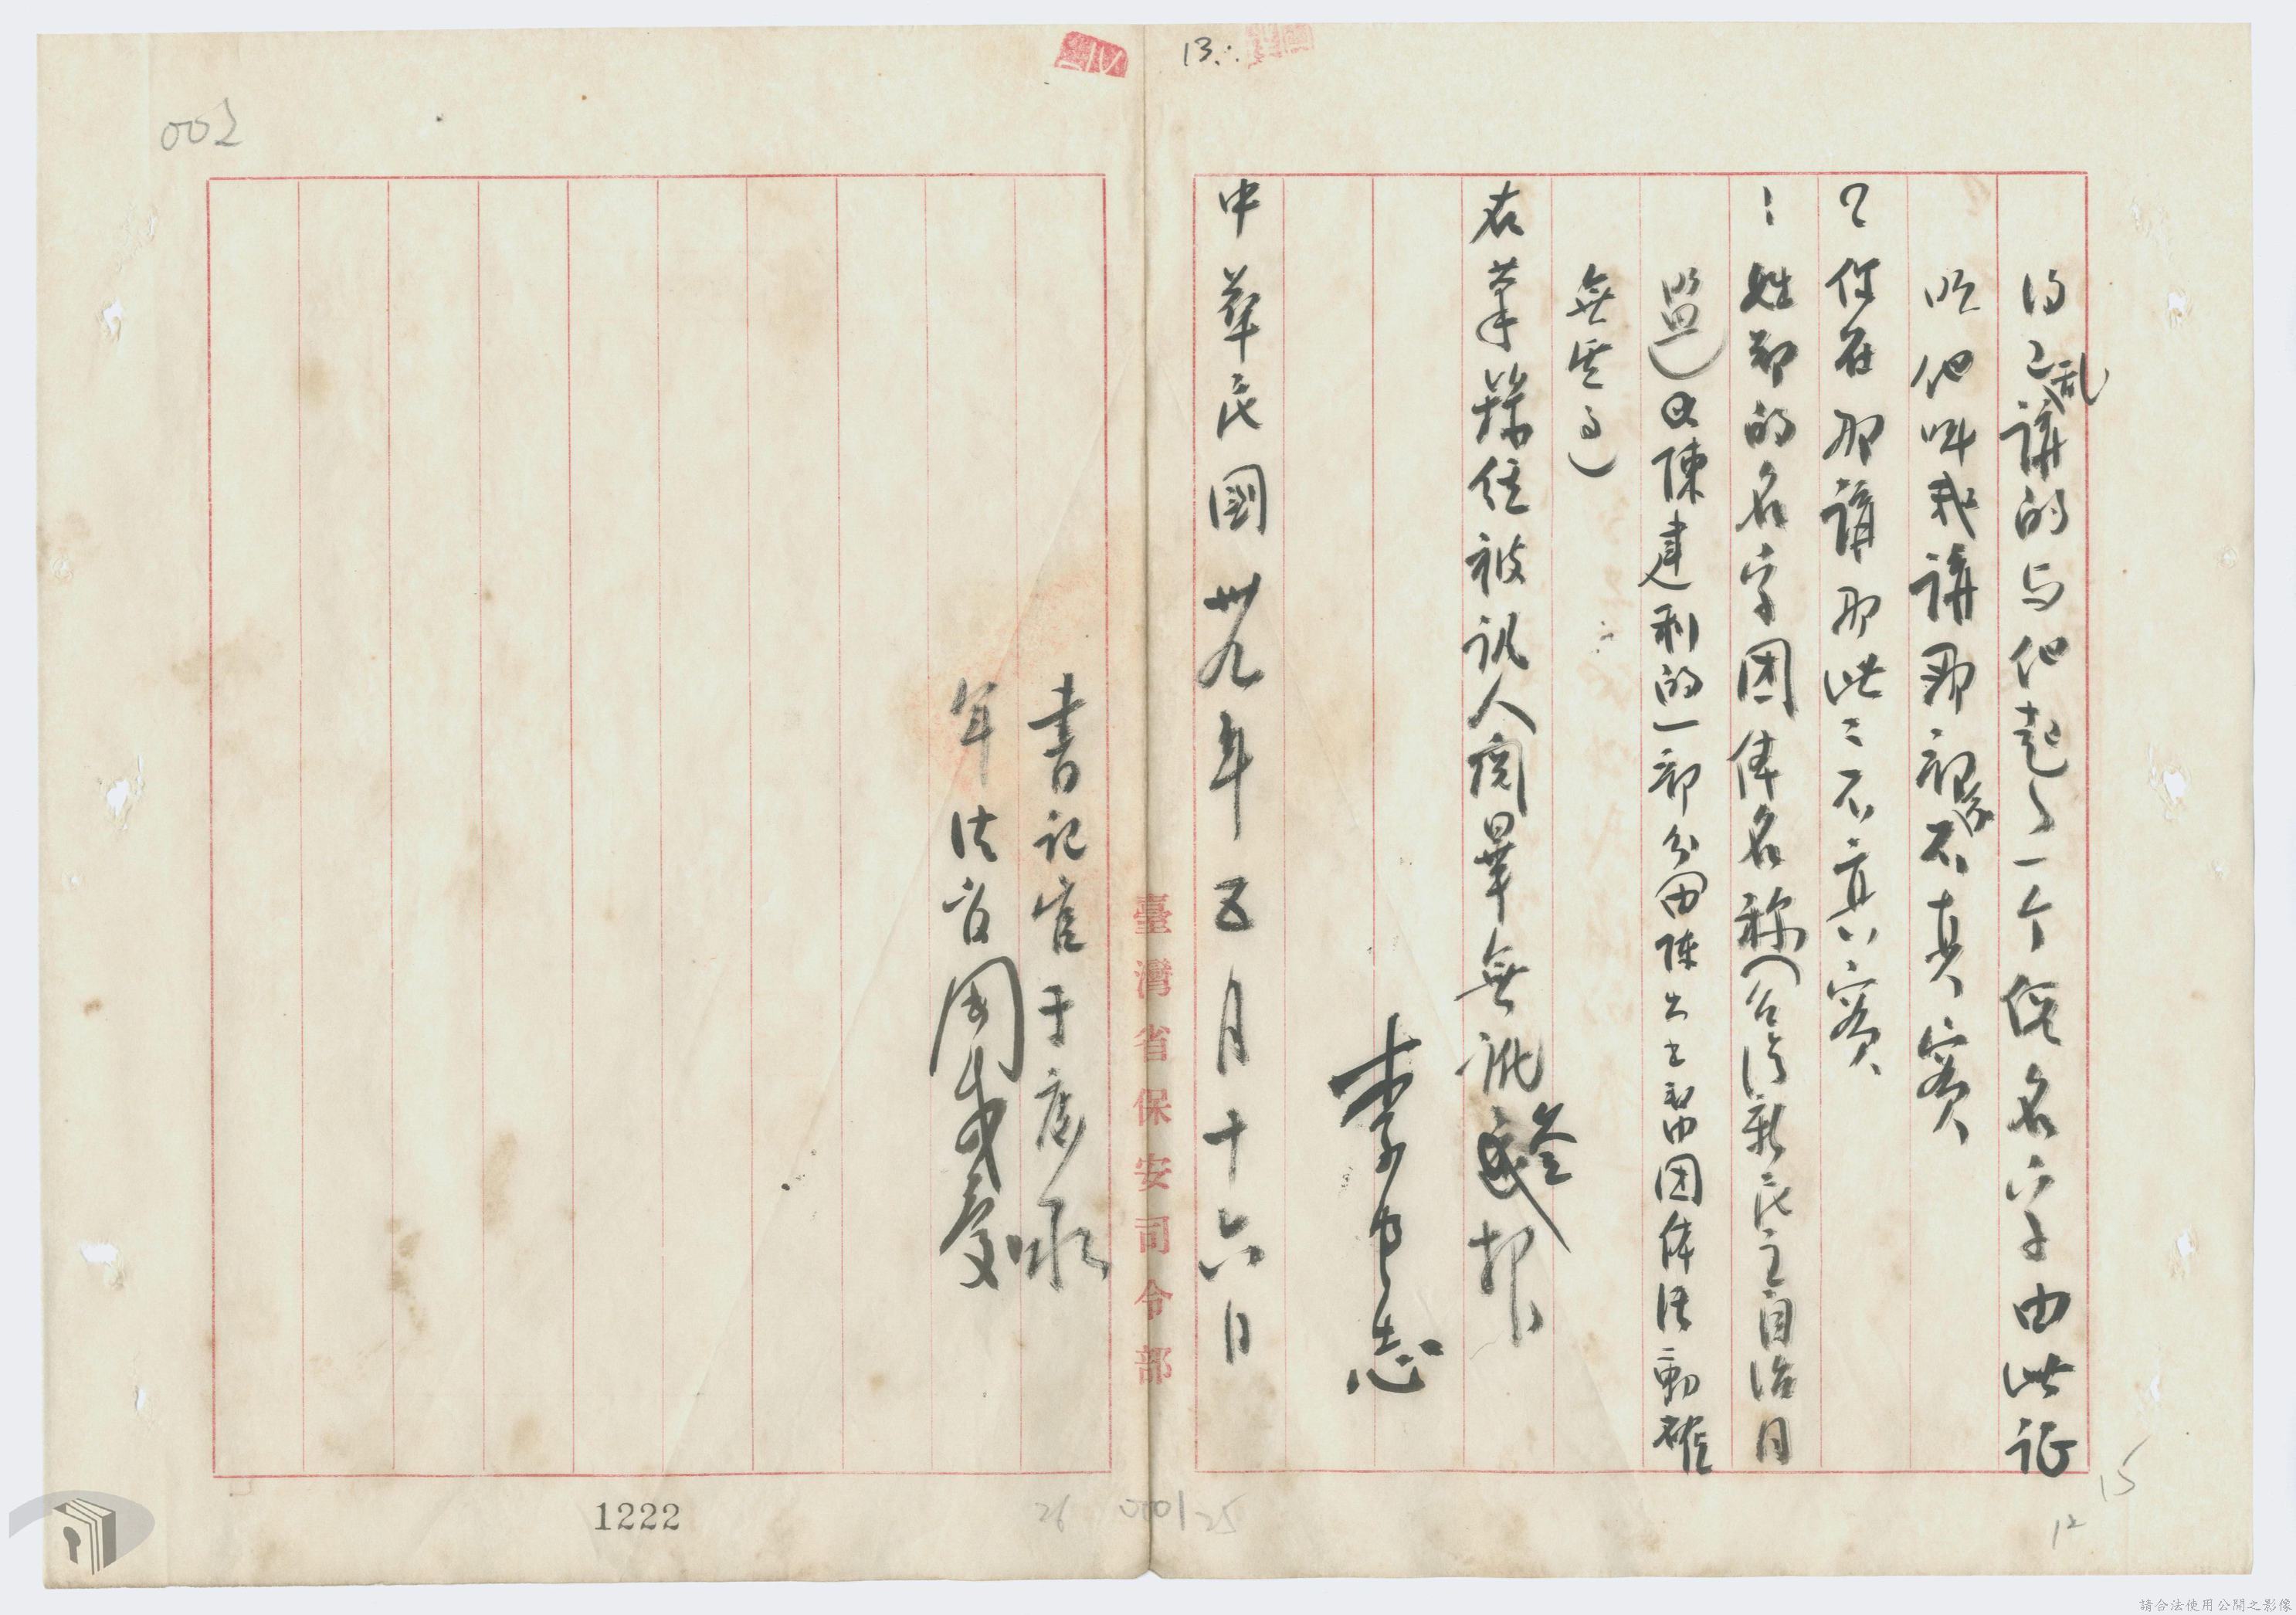 得乱講的与他起了一个假名字由此证
明他叫我講那都不真實
？你在那講那些是不真實
：姓鄭的名字团体名称（台湾新民主自治同
盟）及陳建利的一部分由陳
团体活動確
無其事）
右筆錄經被訊人閱畢無訛簽押
李
志
中華民國卅九年五月十六日
書記官于
軍法官周
臺灣省保安司令部
002
13
1222
26
25
15
12
請合法使用公開之影像